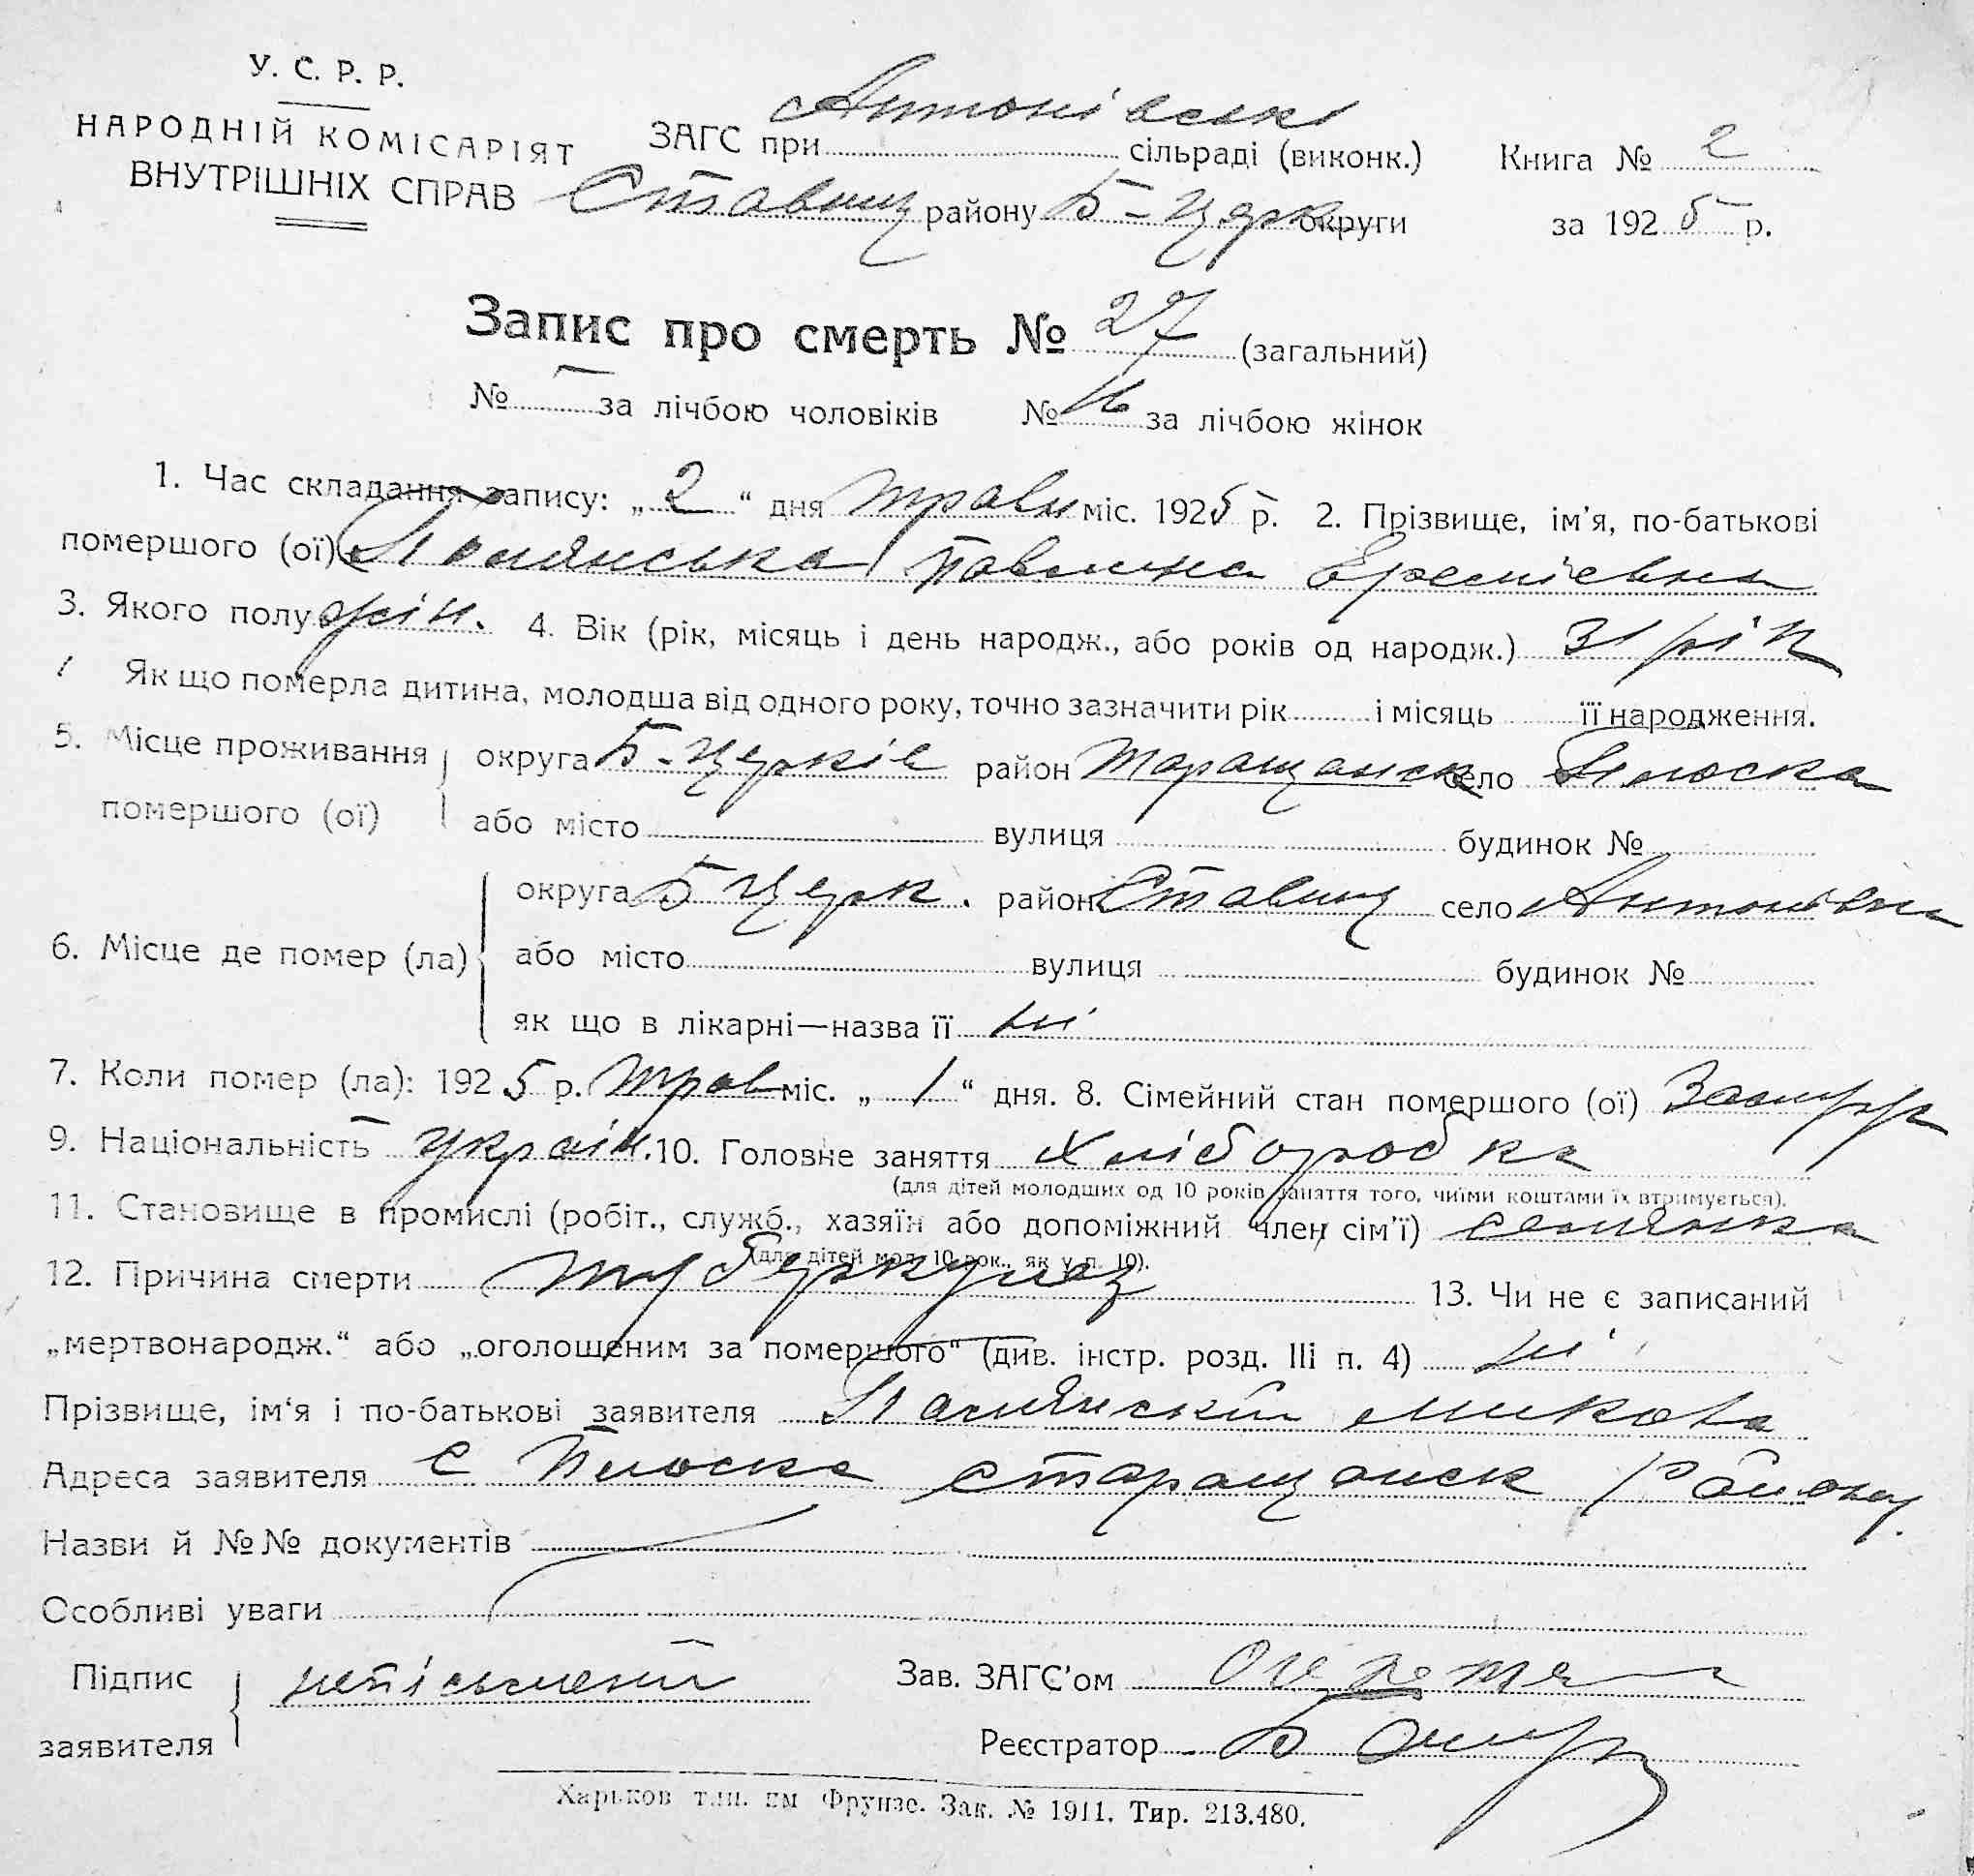 У. С. Р. Р.
НАРОДНІЙ КОМІСАРІЯТ
ВНУТРІШНІХ СПРАВ
ЗАГС при Антонівські сільраді (виконк.)
Ставищ району Б-Церк округи
Книга № 2
за 1925 р.
Запис про смерть № 27 (загальний)
№ – за лічбою чоловіків № за лічбою жінок
1. Час складання запису: „2“ дня Травн міс. 1925 р. 2. Прізвище, ім’я, по-батькові
помершого (ої) Павлина Єремієвна
3. Якого полу жін. 4. Вік (рік, місяць і день народж., або років од народж.) 31 рік
Як що померла дитина, молодша від одного року, точно зазначити рік і місяць її народження.
5. Місце проживання помершого (ої) округа Б-Церків район Таращанск село Плоска
або місто вулиця будинок №
6. Місце де помер (ла) округа Б Церк. район Ставищ село Антонівка
або місто вулиця будинок №
як що в лікарні—назва її ні
7. Коли помер (ла): 1925 р. Трав міс. „1“ дня. 8. Сімейний стан помершого (ої)
9. Національність україн. 10. Головне заняття Хліборобка
(для дітей молодших од 10 років заняття того, чиїми коштами їх втримується).
11. Становище в промислі (робіт., служб., хазяїн або допоміжний член сім’ї) селянка
(для дітей мол. 10 рок., як у п. 10).
12. Причина смерти туберкульоз 13. Чи не є записаний
„мертвонародж.“ або „оголошеним за помершого“ (див. інстр. розд. III п. 4) ні
Прізвище, ім‘я і по-батькові заявителя Микола
Адреса заявителя с Плоска Таращанск Району
Назви й №№ документів
Особливі уваги
Підпис заявителя непісьмений
Зав. ЗАГС’ом
Реєстратор
Харьков тип. им Фрунзе. Зак. № 1911. Тир. 213.480.